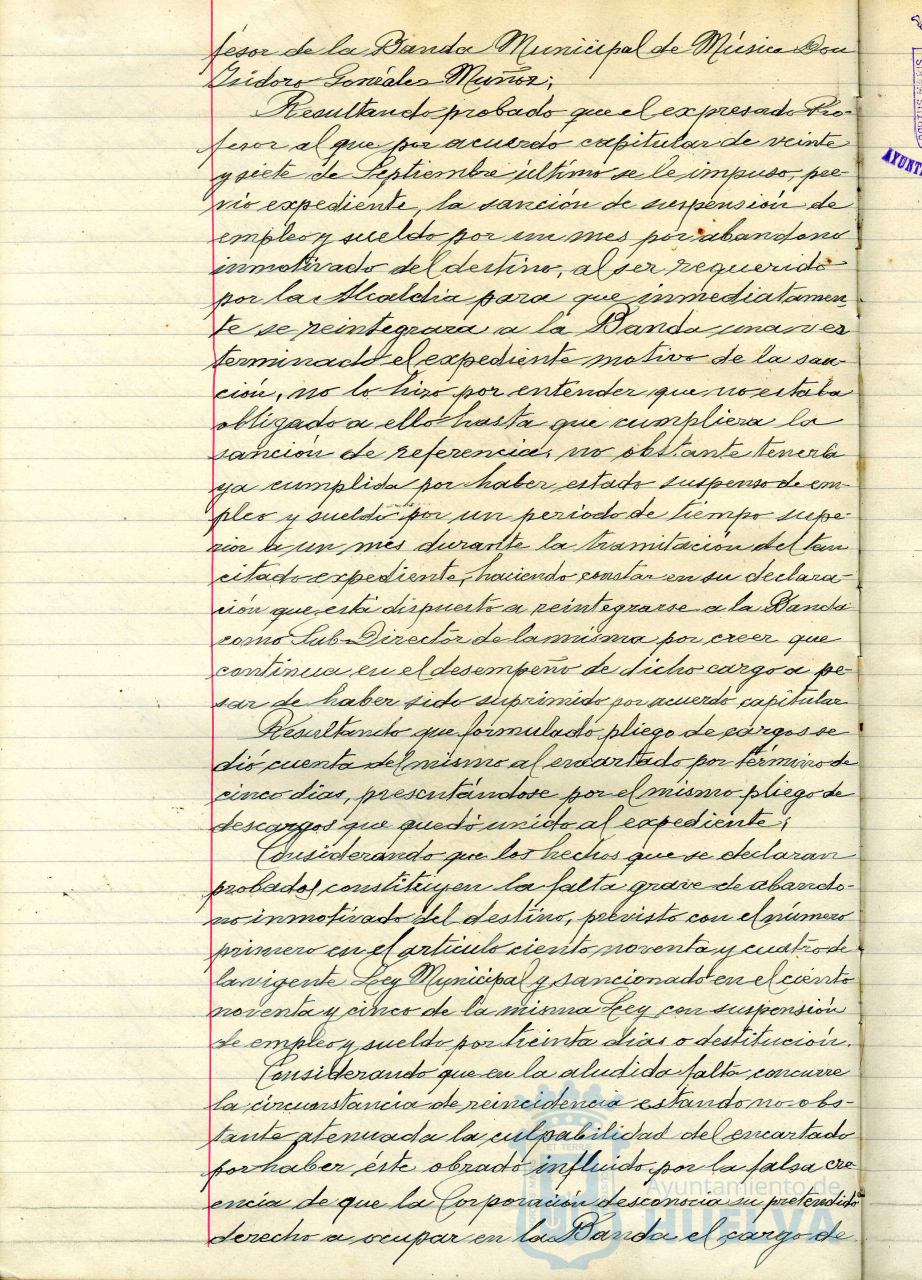 fesor de la Banda Municipal de Música Don
Isidoro Gonzáles Muñoz;
Resultando probado que el expresado Pro-
fesor al que por acuerdo capitular de veinte
y siete de Septiembre último se le impuso, pre-
vio expediente, la sanción de suspensión de
empleo y sueldo por un mes por abandono
inmotivado del destino, al ser requerido
por la Alcaldía para que inmediatamen-
te se reintegrara a la Banda una vez
terminado el expediente motivo de la san-
ción, no lo hizo por entender que no estaba
obligado a ello hasta que cumpliera la
sanción de referencia, no obstante tenerla
ya cumplida por haber estado suspenso de em-
pleo y sueldo por un período de tiempo supe-
rior a un mes durante la tramitación del tan
citado expediente, haciendo constar en su declara-
ción que está dispuesto a reintegrarse a la Banda
como Sub-Director de la misma por creer que
continua en el desempeño de dicho cargo a pe-
sar de haber sido suprimido por acuerdo capitular
Resultando que formulado pliego de cargos se
dió cuenta del mismo al encartado por término de
cinco dias, presentándose por el mismo pliego de
descargos que quedó unido al expediente;
Considerando que los hechos que se declaran
probados constituyen la falta grave de abando-
no inmotivado del destino, previsto con el número
primero en el artículo ciento noventa y cuatro de
la vigente Ley Municipal y sancionado en el ciento
noventa y cinco de la misma Ley con suspensión
de empleo y sueldo por treinta dias o destitución.
Considerando que en la aludida falta concurre
la circunstancia de reincidencia estando no obs-
tante atenuada la culpabilidad del encartado
por haber éste obrado influido por la falsa cre-
encia de que la Corporación desconocía su pretendido
derecho a ocupar en la Banda el cargo de
Ayuntamiento de
HUELVA